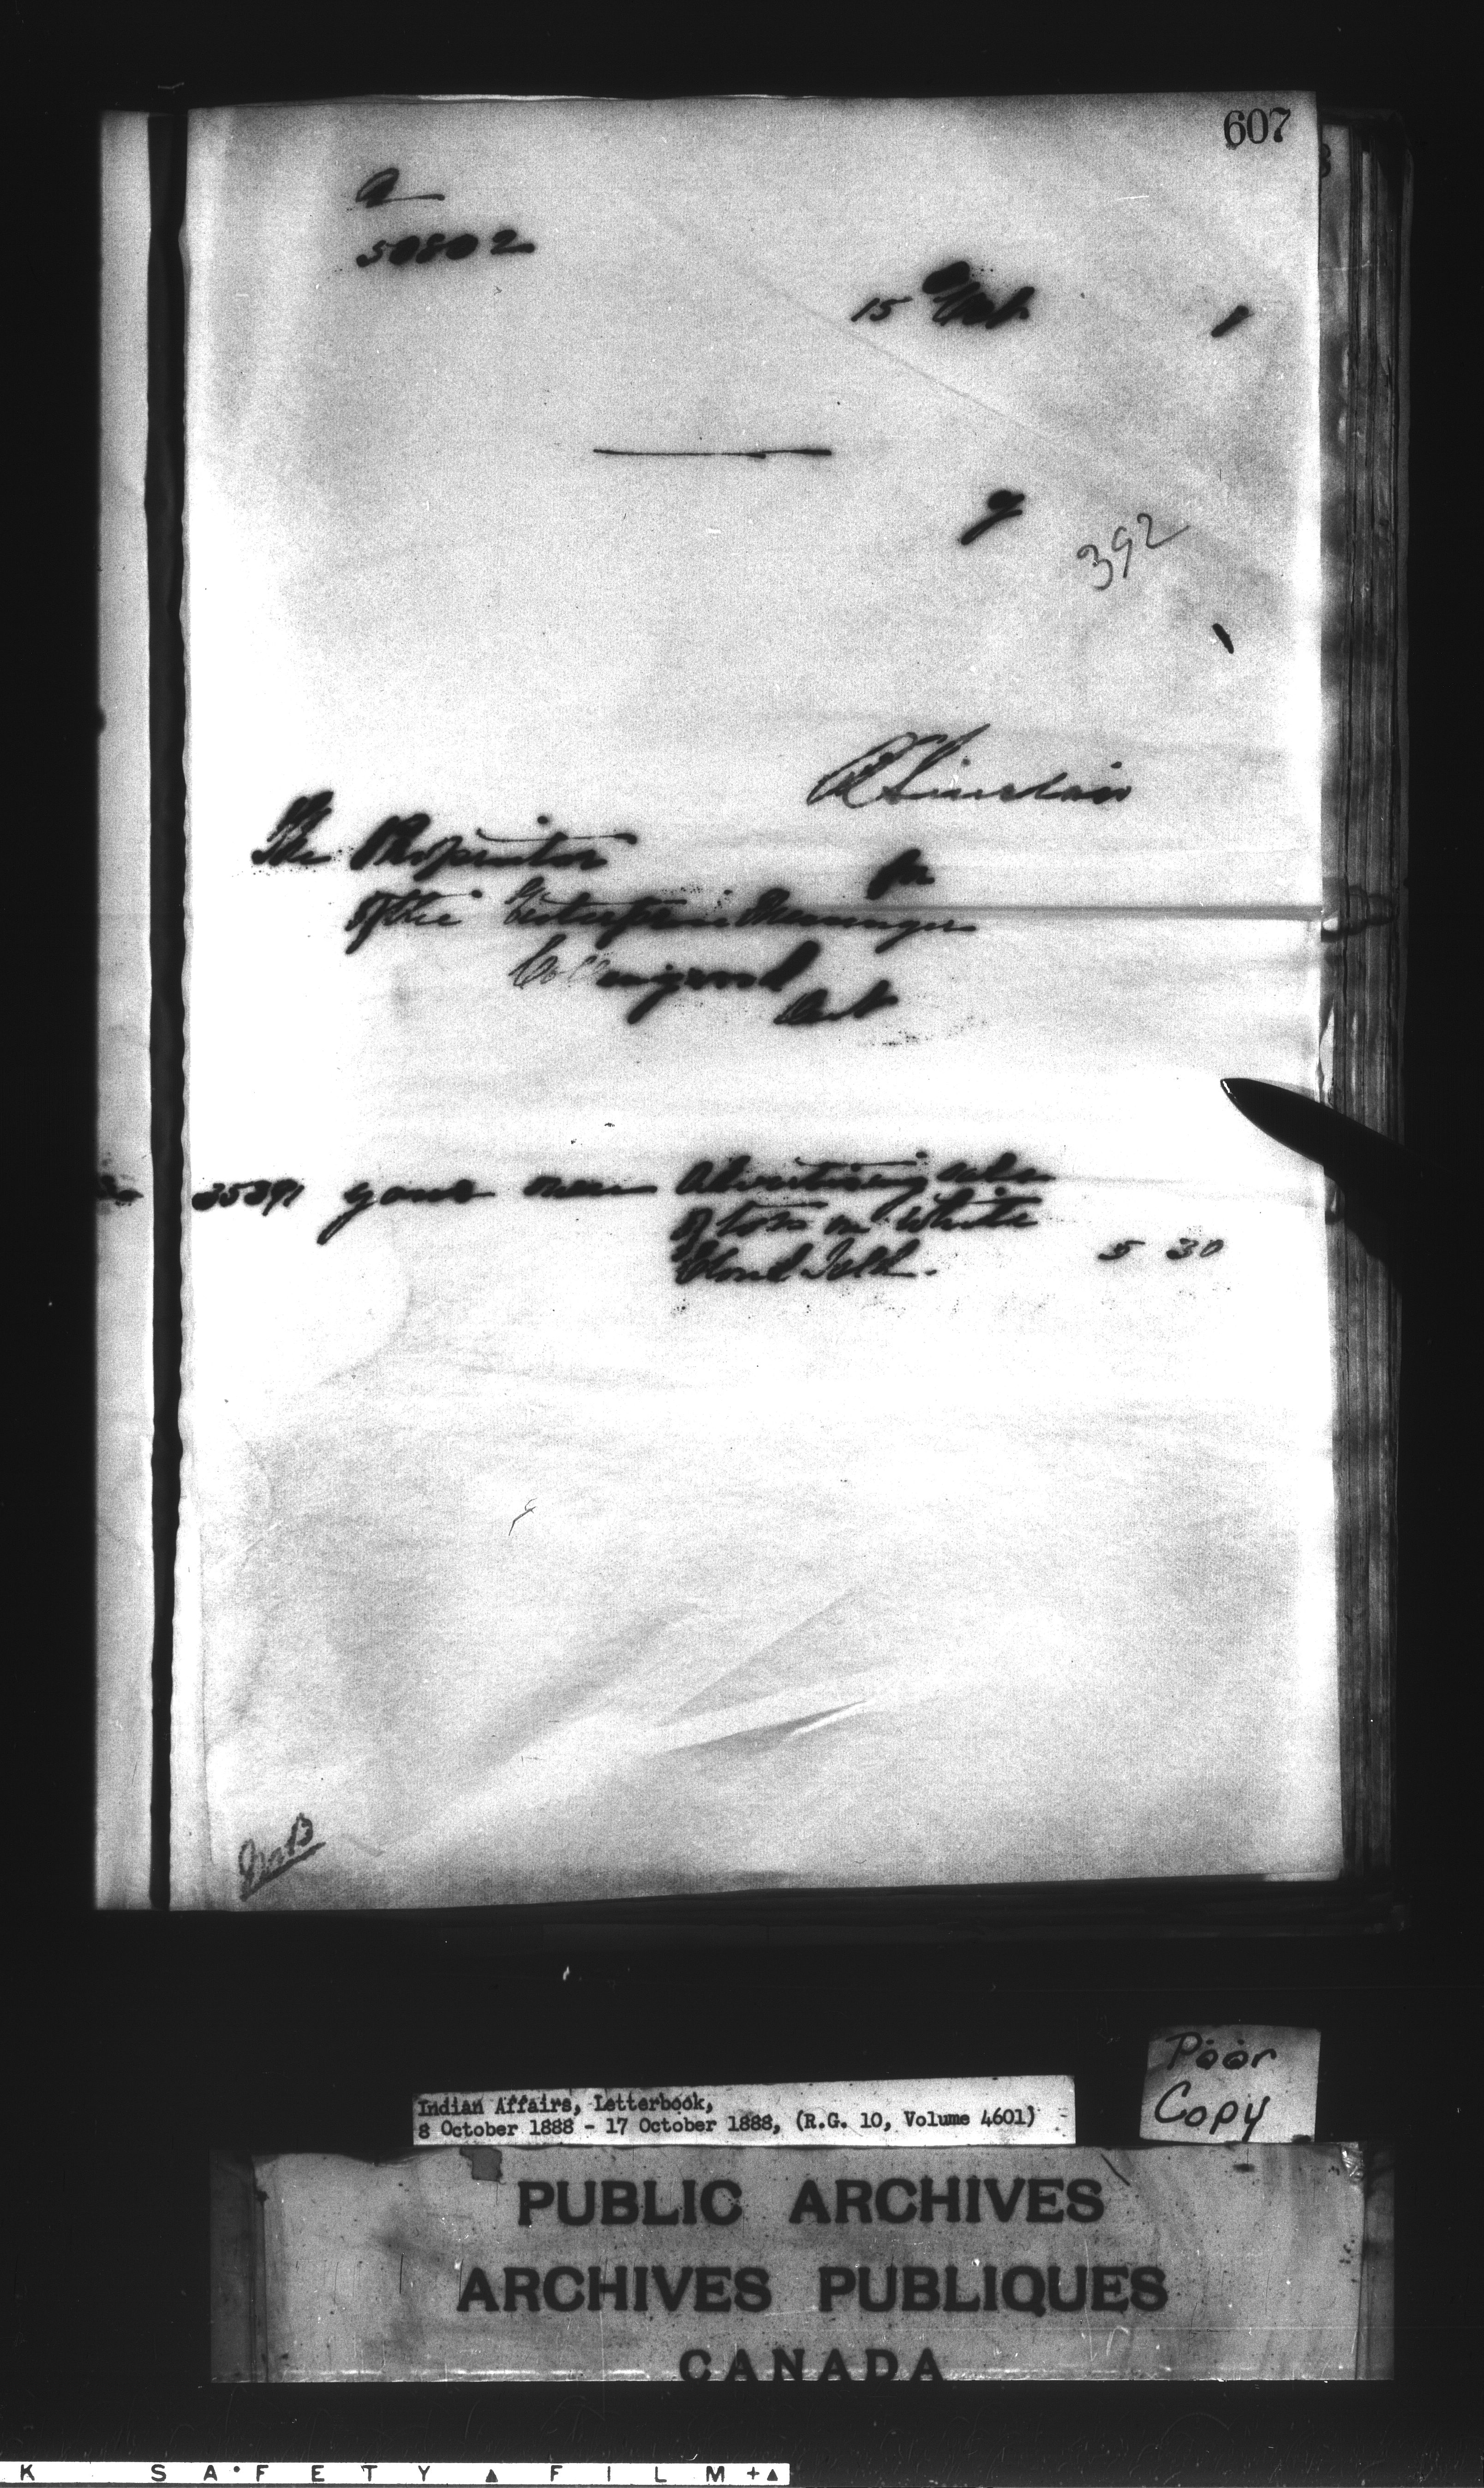 607
a
50802
15 Oct
y
392
R Sinclair
The Proprietor
for
of the Enterprise Messenger
Collingwood
Ont
35391 your Advertising sales
of lots in White
Cloud Isld.
5 30
Poor
Copy
Indian Affairs, Letterbook,
8 October 1888 - 17 October 1888, (R.G. 10, Volume 4601)
PUBLIC ARCHIVES
ARCHIVES PUBLIQUES
CANADA
K SA·FETY ▲ FILM +▲